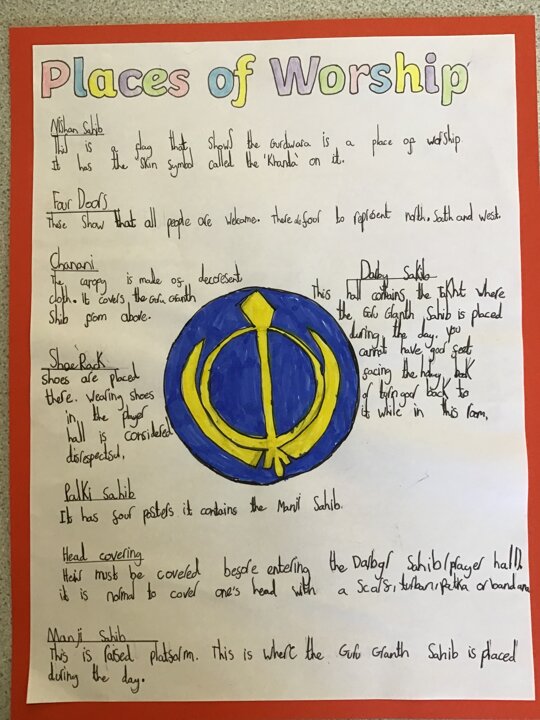 Places of Worship
Nishan Sahib
This is a flag that shows the Gurdwara is a place of worship
It has the skin symbol called the 'Khanda' on it.
Four Doors
These show that all people are welcome. There to represent north, south and west.
Chanani
The canopy is made of
cloth. It covers the Guru Granth
Shib from above.
Sahib
This hall contains the Takht where
the Guru Granth Sahib is placed
during the day. you
cannot have your feet
facing the holy book
or turn your back to
it while in this room.
Shoe Rack
shoes are placed
there. Wearing shoes
in the prayer
hall is considered
disrespectful.
Palki Sahib
It has four posters it contains the Manji Sahib.
Head covering
Hair must be covered before entering the Sahib/prayer hall.
it is normal to cover one's head with a scarf, turban, patka or bandana
Manji Sahib
This is raised platform. This is where the Guru Granth Sahib is placed
during the day.